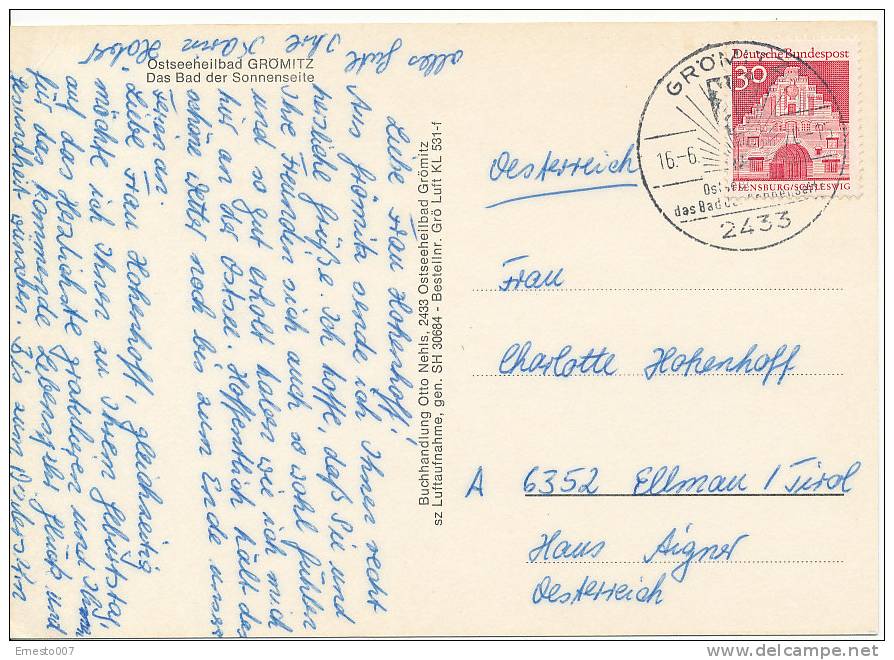 Ostseeheilbad GRÖMITZ
Das Bad der Sonnenseite
Liebe Frau Hohenhoff!
Aus Grömitz sende ich Ihnen recht
herzliche Grüße. Ich hoffe, daß Sie und
Ihre Freunden sich auch so wohl fühlen
und so gut erholt haben wie ich mich
hier an der Ostsee. Hoffentlich hält das
schöne Wetter noch bis zum Ende unserer
Ferien an.
Liebe Frau Hohenhoff, gleichzeitig
möchte ich Ihnen zu Ihrem Geburtstag
auf das Herzlichste gratulieren und Ihnen
für das kommende Lebensjahr Glück und
Gesundheit wünschen. Bis zum Wiedersehn
alles Gute
Ihre Karin
Buchhandlung Otto Nehls, 2433 Ostseeheilbad Grömitz
sz Luftaufnahme, gen. SH 30684 - Bestellnr. Grö Luft KL 531-f
Deutsche Bundespost
30
FLENSBURG/SCHLESWIG
GRÖMITZ
16.-6.
das Bad der Sonnenseite
2433
Oesterreich
Frau
Charlotte Hohenhoff
A 6352 Ellmau / Tirol
Haus Aigner
Oesterreich
Ernesto007
www.delcampe.net